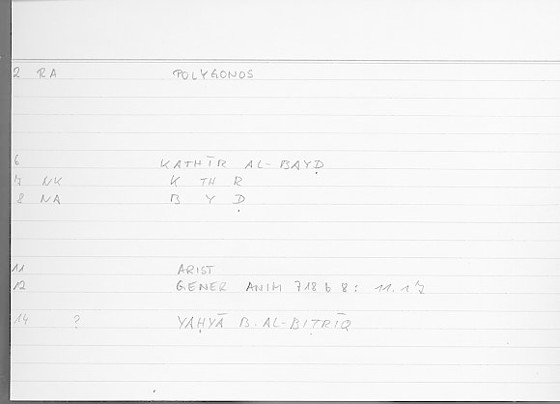 2 RA POLYGONOS
6 KATHĪR AL-BAYḌ
7 NK K TH R
8 NA B Y Ḍ
11 ARIST
12 GENER ANIM 718 b 8: 11.17
14 ? YAḤYĀ B. AL-BIṬRĪQ